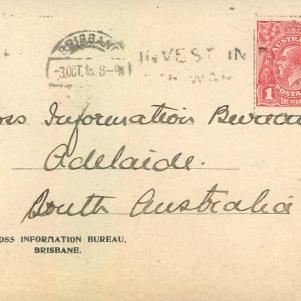 BRISBANE
3 OCT. 16 8-PM
INVEST IN
WAR
AUSTRALIA
1
POSTAGE
ONE PENNY
oss Information Bureau
Adelaide.
South Australia
OSS INFORMATION BUREAU,
BRISBANE.